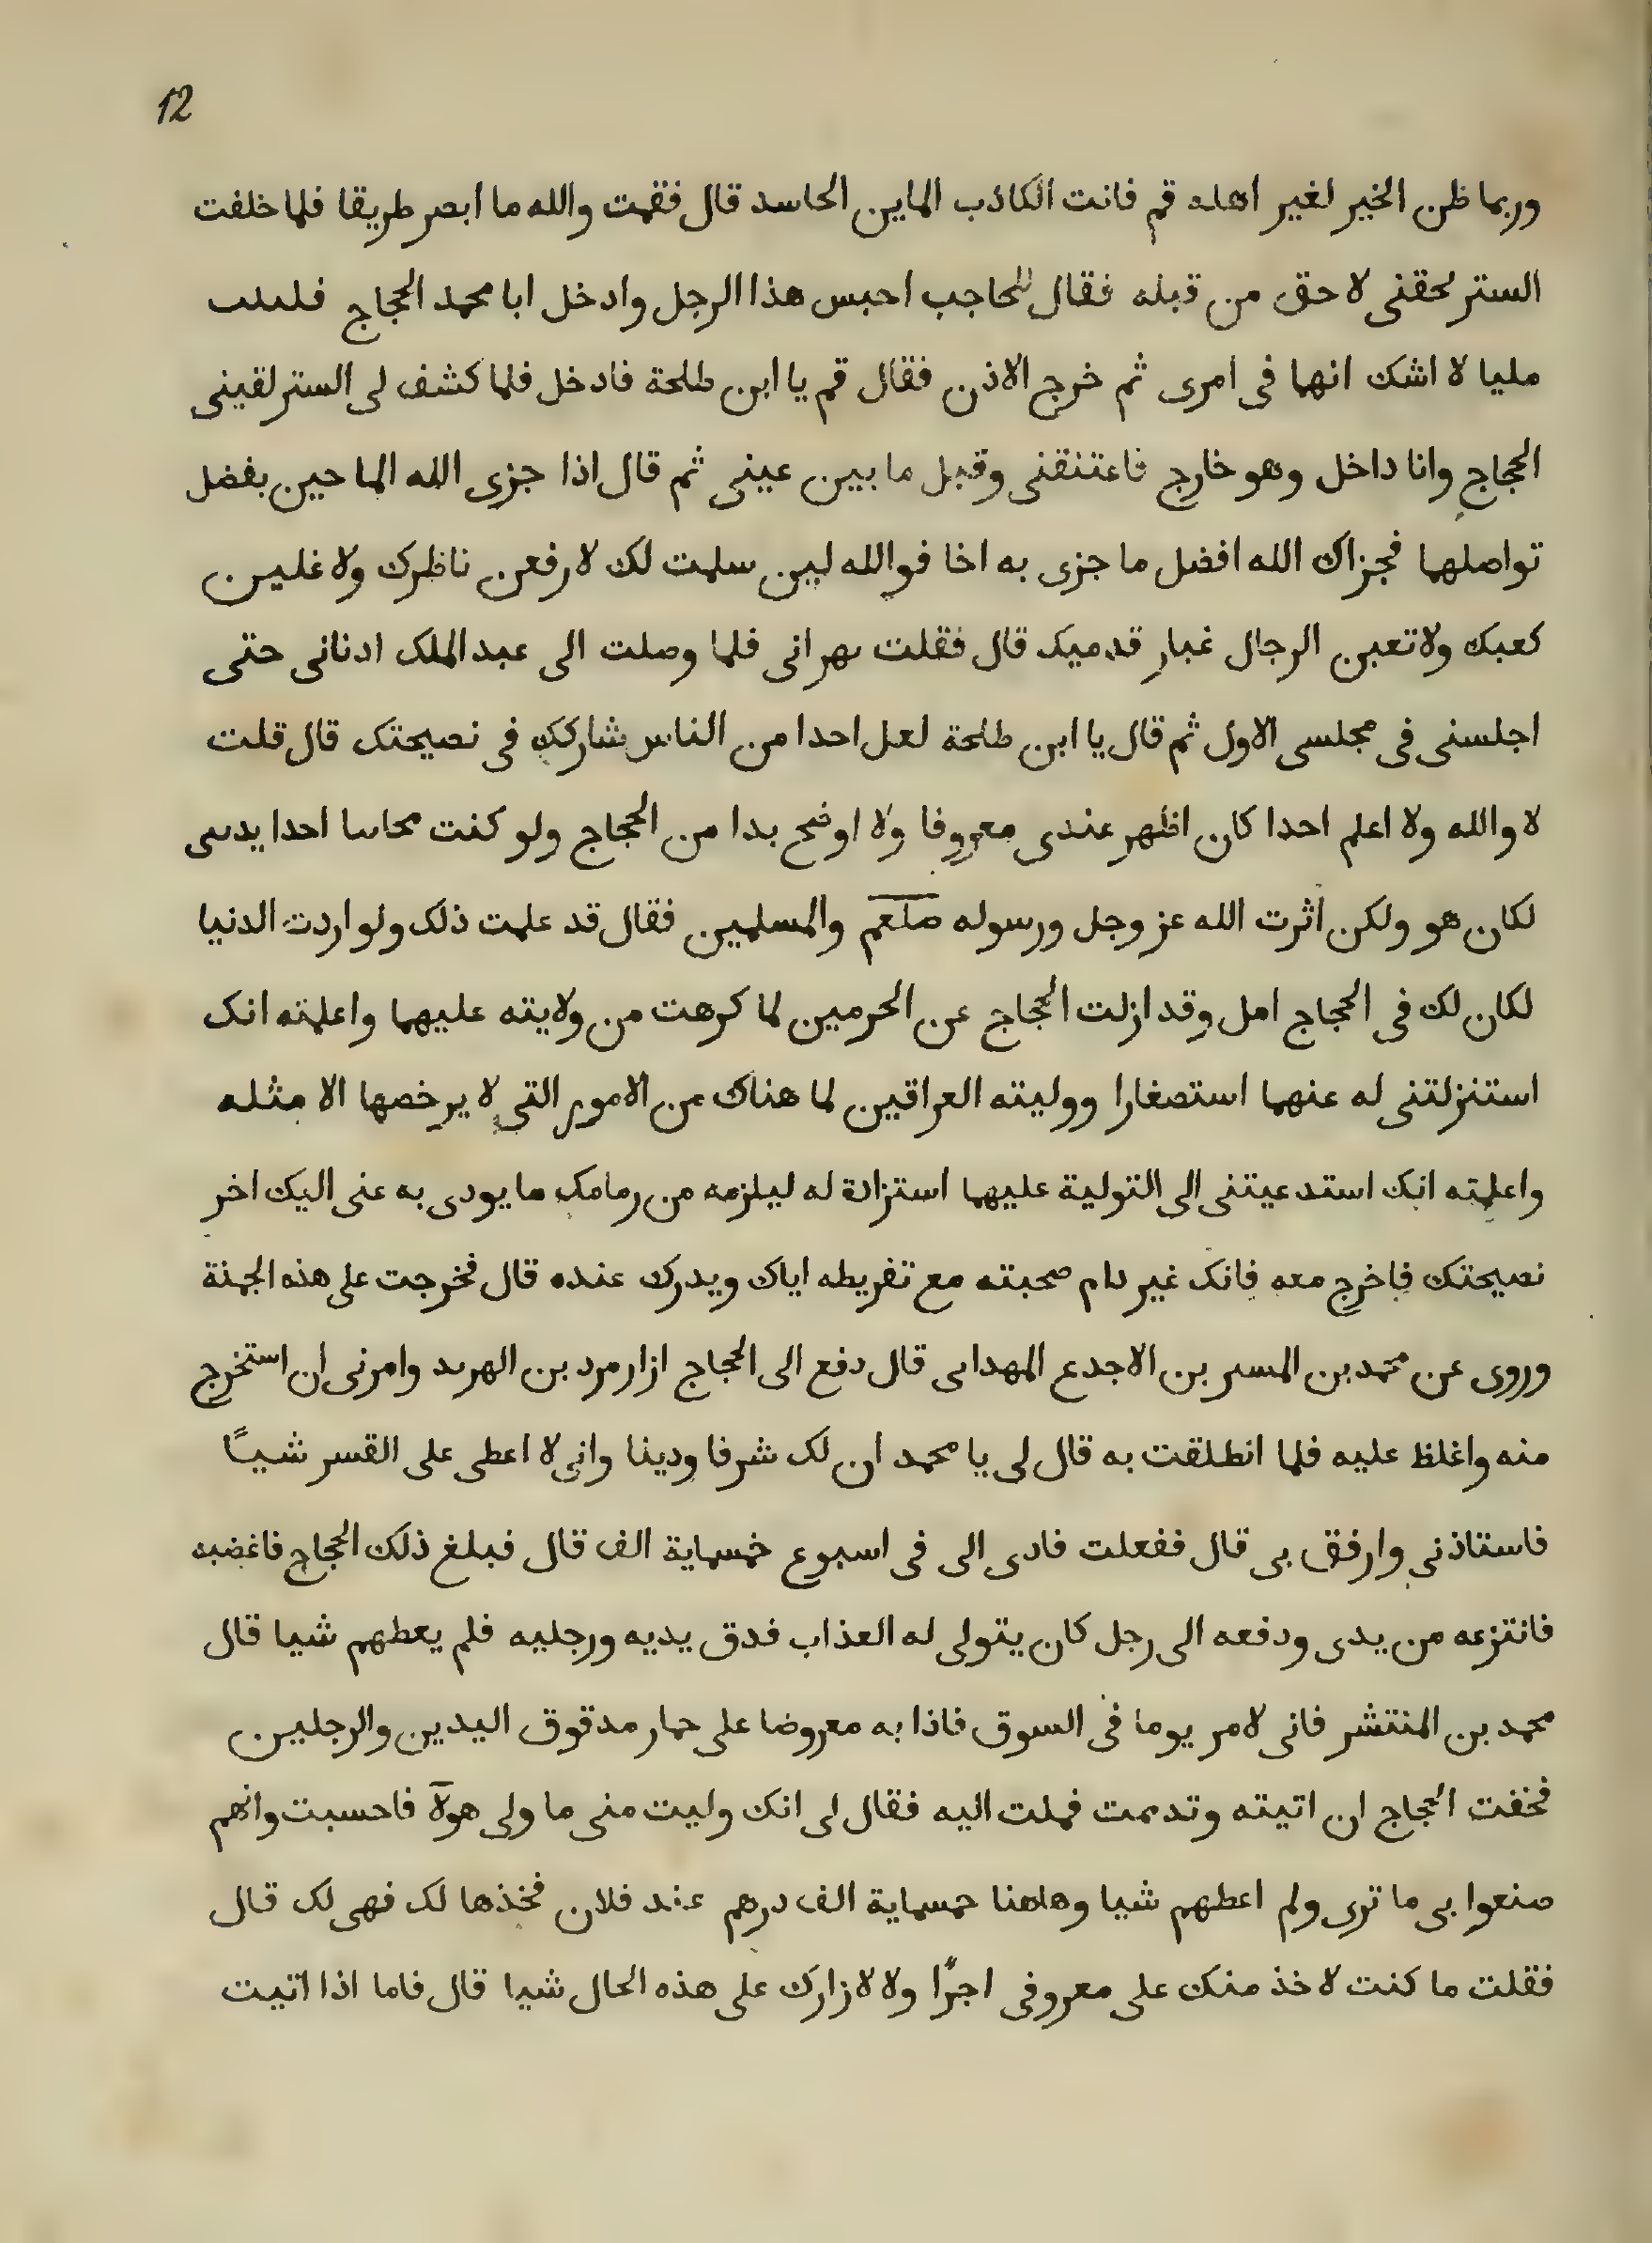 12
وربما ظن الخير لغير اهله قم فانت الكاذب الماين الحاسد قال فقمت والله ما ابصر طريقا فلما خلفت
الستر لحقنى لاحق من قبله فقال للحاجب احبس هذا الرجل وادخل ابا محمد الحجاج
مليا لا اشك انهما فى امرى ثم خرج الاذن فقال قم يا ابن طلحة فادخل فلما كشف لى الستر لقينى
الحجاج وانا داخل وهو خارج فاعتنقنى وقبل ما بين عينى ثم قال اذا جزى الله الماحين بفضل
تواصلهما فجزاك الله افضل ما جزى به اخا فوالله ليين سلمت لك لارفعن ناظرك ولاغلين
كعبك ولاتعبن الرجال غبار قدميك قال فقلت يهرانى فلما وصلت الى عبد الملك ادنانى حتى
اجلسنى فى مجلسى الاول ثم قال يا ابن طلحة لعل احدا من الناس شاركك فى نصيحتك قال قلت
لا والله ولا اعلم احدا كان اظهر عندى معروفا ولا اوضح بدا من الحجاج ولو كنت احدا
لكان هو ولكن اثرت الله عز وجل ورسوله صلعم والمسلمين فقال قد علمت ذلك ولو اردت الدنيا
لكان لك فى الحجاج امل وقد ازلت الحجاج عن الحرمين لما كرهت من ولايته عليهما واعلمته انك
استنزلتنى له عنهما استصغارا ووليته العراقين لما هناك من الامور التى لا يرخصها الا مثله
واعلمته انك استدعيتنى الى التولية عليهما استزادة له ليلزمه من رمامك ما يودى به عنى اليك اخر
نصيحتك فاخرج معه فانك غير دام صحبته مع تفريطه اياك ويدرك عنده قال فخرجت على هذه الجهنة
وروى عن محمد بن بن الاجدع قال دفع الى الحجاج ازار مرد بن وامرنى ان استخرج
منه واغلظ عليه فلما انطلقت به قال لى يا محمد ان لك شرفا ودينا وانى لا اعطى على القسر شيـًا
فاستاذنى وارفق بى قال ففعلت فادى الى فى اسبوع خمسماية الف قال فبلغ ذلك الحجاج فاغضبه
فانتزعه من يدى ودفعه الى رجل كان يتولى له العذاب فدق يديه ورجليه فلم يعطهم شيا قال
محمد بن المنتشر فانى لامر يوما فى السوق فاذا به معروضا على حمار مدقوق اليدين والرجلين
فخفت الحجاج ان اتيته وتدممت فملت اليه فقال لى انك وليت منى ما ولى هولآ فاحسبت وانهم
صنعوا بى ما ترى ولم اعطهم شيا وهاهنا خمسماية الف درهم عند فلان فخذها لك فهى لك قال
فقلت ما كنت لاخذ منك على معروفى اجرًا ولا لازارك على هذه الحال شيا قال فاما اذا اتيت